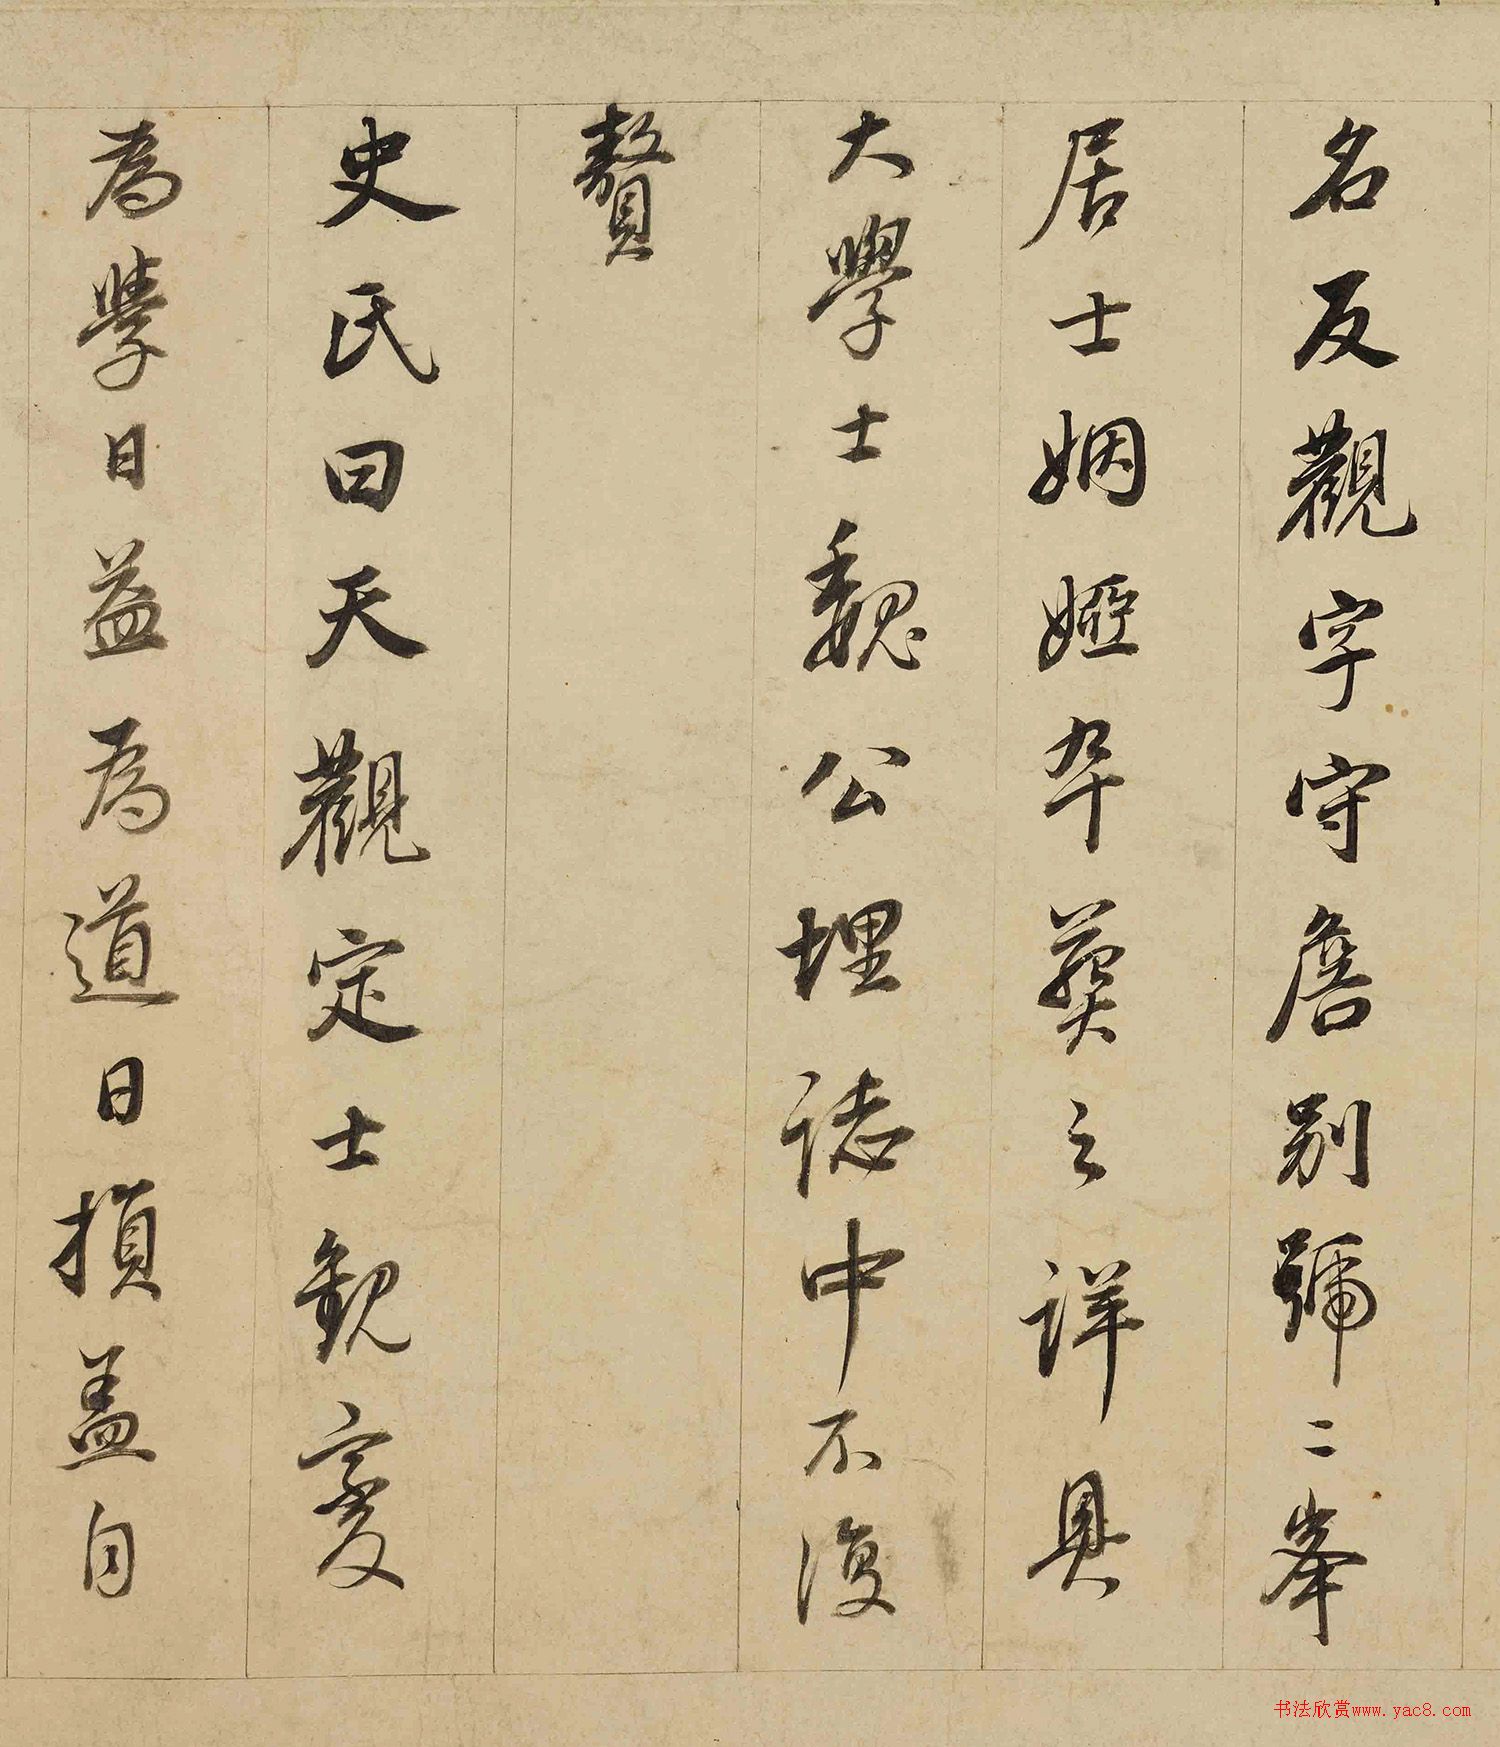 名反觀字守詹別號二峯
居士姻婭卒葬之詳具
大學士魏公埋誌中不復
贅
史氏曰天觀定士觀變
為學日益為道日損蓋自
书法欣赏www.yac8.com